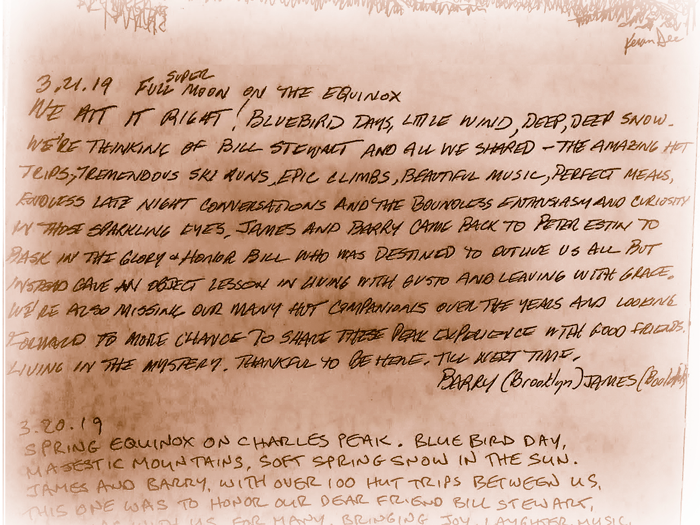 Kevan Dee
SUPER
3.21.19 FULL MOON ON THE EQUINOX
WE HIT IT RIGHT! BLUEBIRD DAYS, LITTLE WIND, DEEP, DEEP SNOW.
WE'RE THINKING OF BILL STEWART AND ALL WE SHARED - THE AMAZING HUT
TRIPS, TREMENDOUS SKI RUNS, EPIC CLIMBS, BEAUTIFUL MUSIC, PERFECT MEALS,
ENDLESS LATE NIGHT CONVERSATIONS AND THE BOUNDLESS ENTHUSIASM AND CURIOSITY
IN THOSE SPARKLING EYES. JAMES AND BARRY CAME BACK TO PETER ESTIN TO
BASK IN THE GLORY & HONOR BILL WHO WAS DESTINED TO OUTLIVE US ALL BUT
INSTEAD GAVE AN OBJECT LESSON IN LIVING WITH GUSTO AND LEAVING WITH GRACE.
WE'RE ALSO MISSING OUR MANY HUT COMPANIONS OVER THE YEARS AND LOOKING
FORWARD TO MORE CHANCE TO SHARE THESE PEAK EXPERIENCE WITH GOOD FRIENDS.
LIVING IN THE MYSTERY. THANKFUL TO BE HERE. TILL NEXT TIME.
BARRY (Brooklyn) JAMES
3.20.19
SPRING EQUINOX ON CHARLES PEAK. BLUEBIRD DAY,
MAJESTIC MOUNTAINS, SOFT SPRING SNOW IN THE SUN.
JAMES AND BARRY, WITH OVER 100 HUT TRIPS BETWEEN US,
THIS ONE WAS TO HONOR OUR DEAR FRIEND BILL STEWART,
WITH US FOR MANY, BRINGING JOY, LAUGHTER, MUSIC